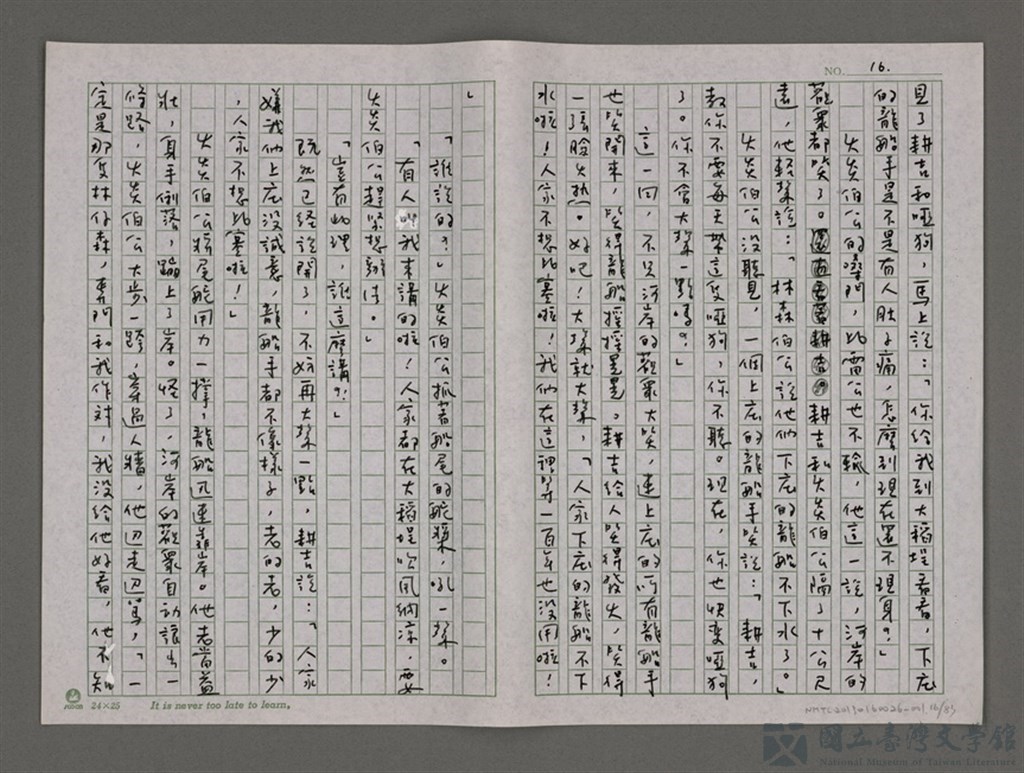 NO. 16.
見了耕吉和啞狗,馬上說:「你給我到大稻埕看看,下庄
的龍船手是不是有人肚子痛,怎麼到現在還不現身?」
火炎伯公的嗓門,比雷公也不輸,他這一說,河岸的
觀眾都笑了。耕吉和火炎伯公隔了十公尺
遠,他輕聲說:「林森伯公說他們下庄的龍船不下水了。」
火炎伯公沒聽見,一個上庄的龍船手笑說:「耕吉,
教你不要每天帶這隻啞狗,你不聽。現在,你也快變啞狗
了。你不會大聲一點嗎?」
這一回,不只河岸的觀眾大笑,連上庄的所有龍船手
也笑開來,笑得龍船搖搖晃晃。耕吉給人笑得發火,笑得
一張臉火熱。好吧!大聲就大聲,「人家下庄的龍船不下
水啦!人家不想比賽啦!我們在這裡等一百年也沒用啦!
」
「誰說的?」火炎伯公抓著船尾的舵槳,吼一聲。
「有人叫我來講的啦!人家都在大稻埕吹風納涼,要
火炎伯公趕緊想辦法。」
「豈有此理,誰這麼講?!」
既然已經說開了,不妨再大聲一點,耕吉說:「人家
嫌我們上庄沒誠意,龍船手都不像樣子,老的老,少的少
,人家不想比賽啦!」
火炎伯公將尾舵用力一撐,龍船迅速靠岸。他老當益
壯,身手俐落,蹦上了岸。怪了,河岸的觀眾自動讓出一
條路,火炎伯公大步一跨,穿過人牆,他邊走邊罵,「一
定是那隻林仔森,專門和我作對,我沒給他好看,他不知
24×25
It is never too late to learn.
NMTL20190160026-001 16/83
國立臺灣文學館
National Museum of Taiwan Literature